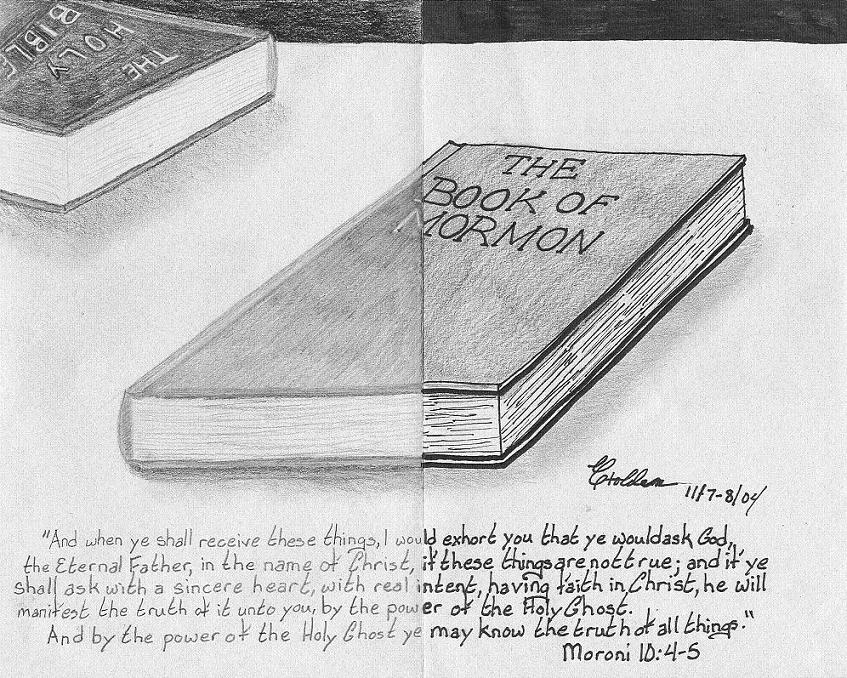 THE
HOLY
BIBLE
THE
BOOK OF
MORMON
11/7-8/04
"And when ye shall receive these things, I would exhort you that ye would ask God,
the Eternal Father, in the name of Christ, if these things are not true; and if ye
shall ask with a sincere heart, with real intent, having faith in Christ, he will
manifest the truth of it unto you, by the power of the Holy Ghost.
And by the power of the Holy Ghost ye may know the truth of all things."
Moroni 10:4-5